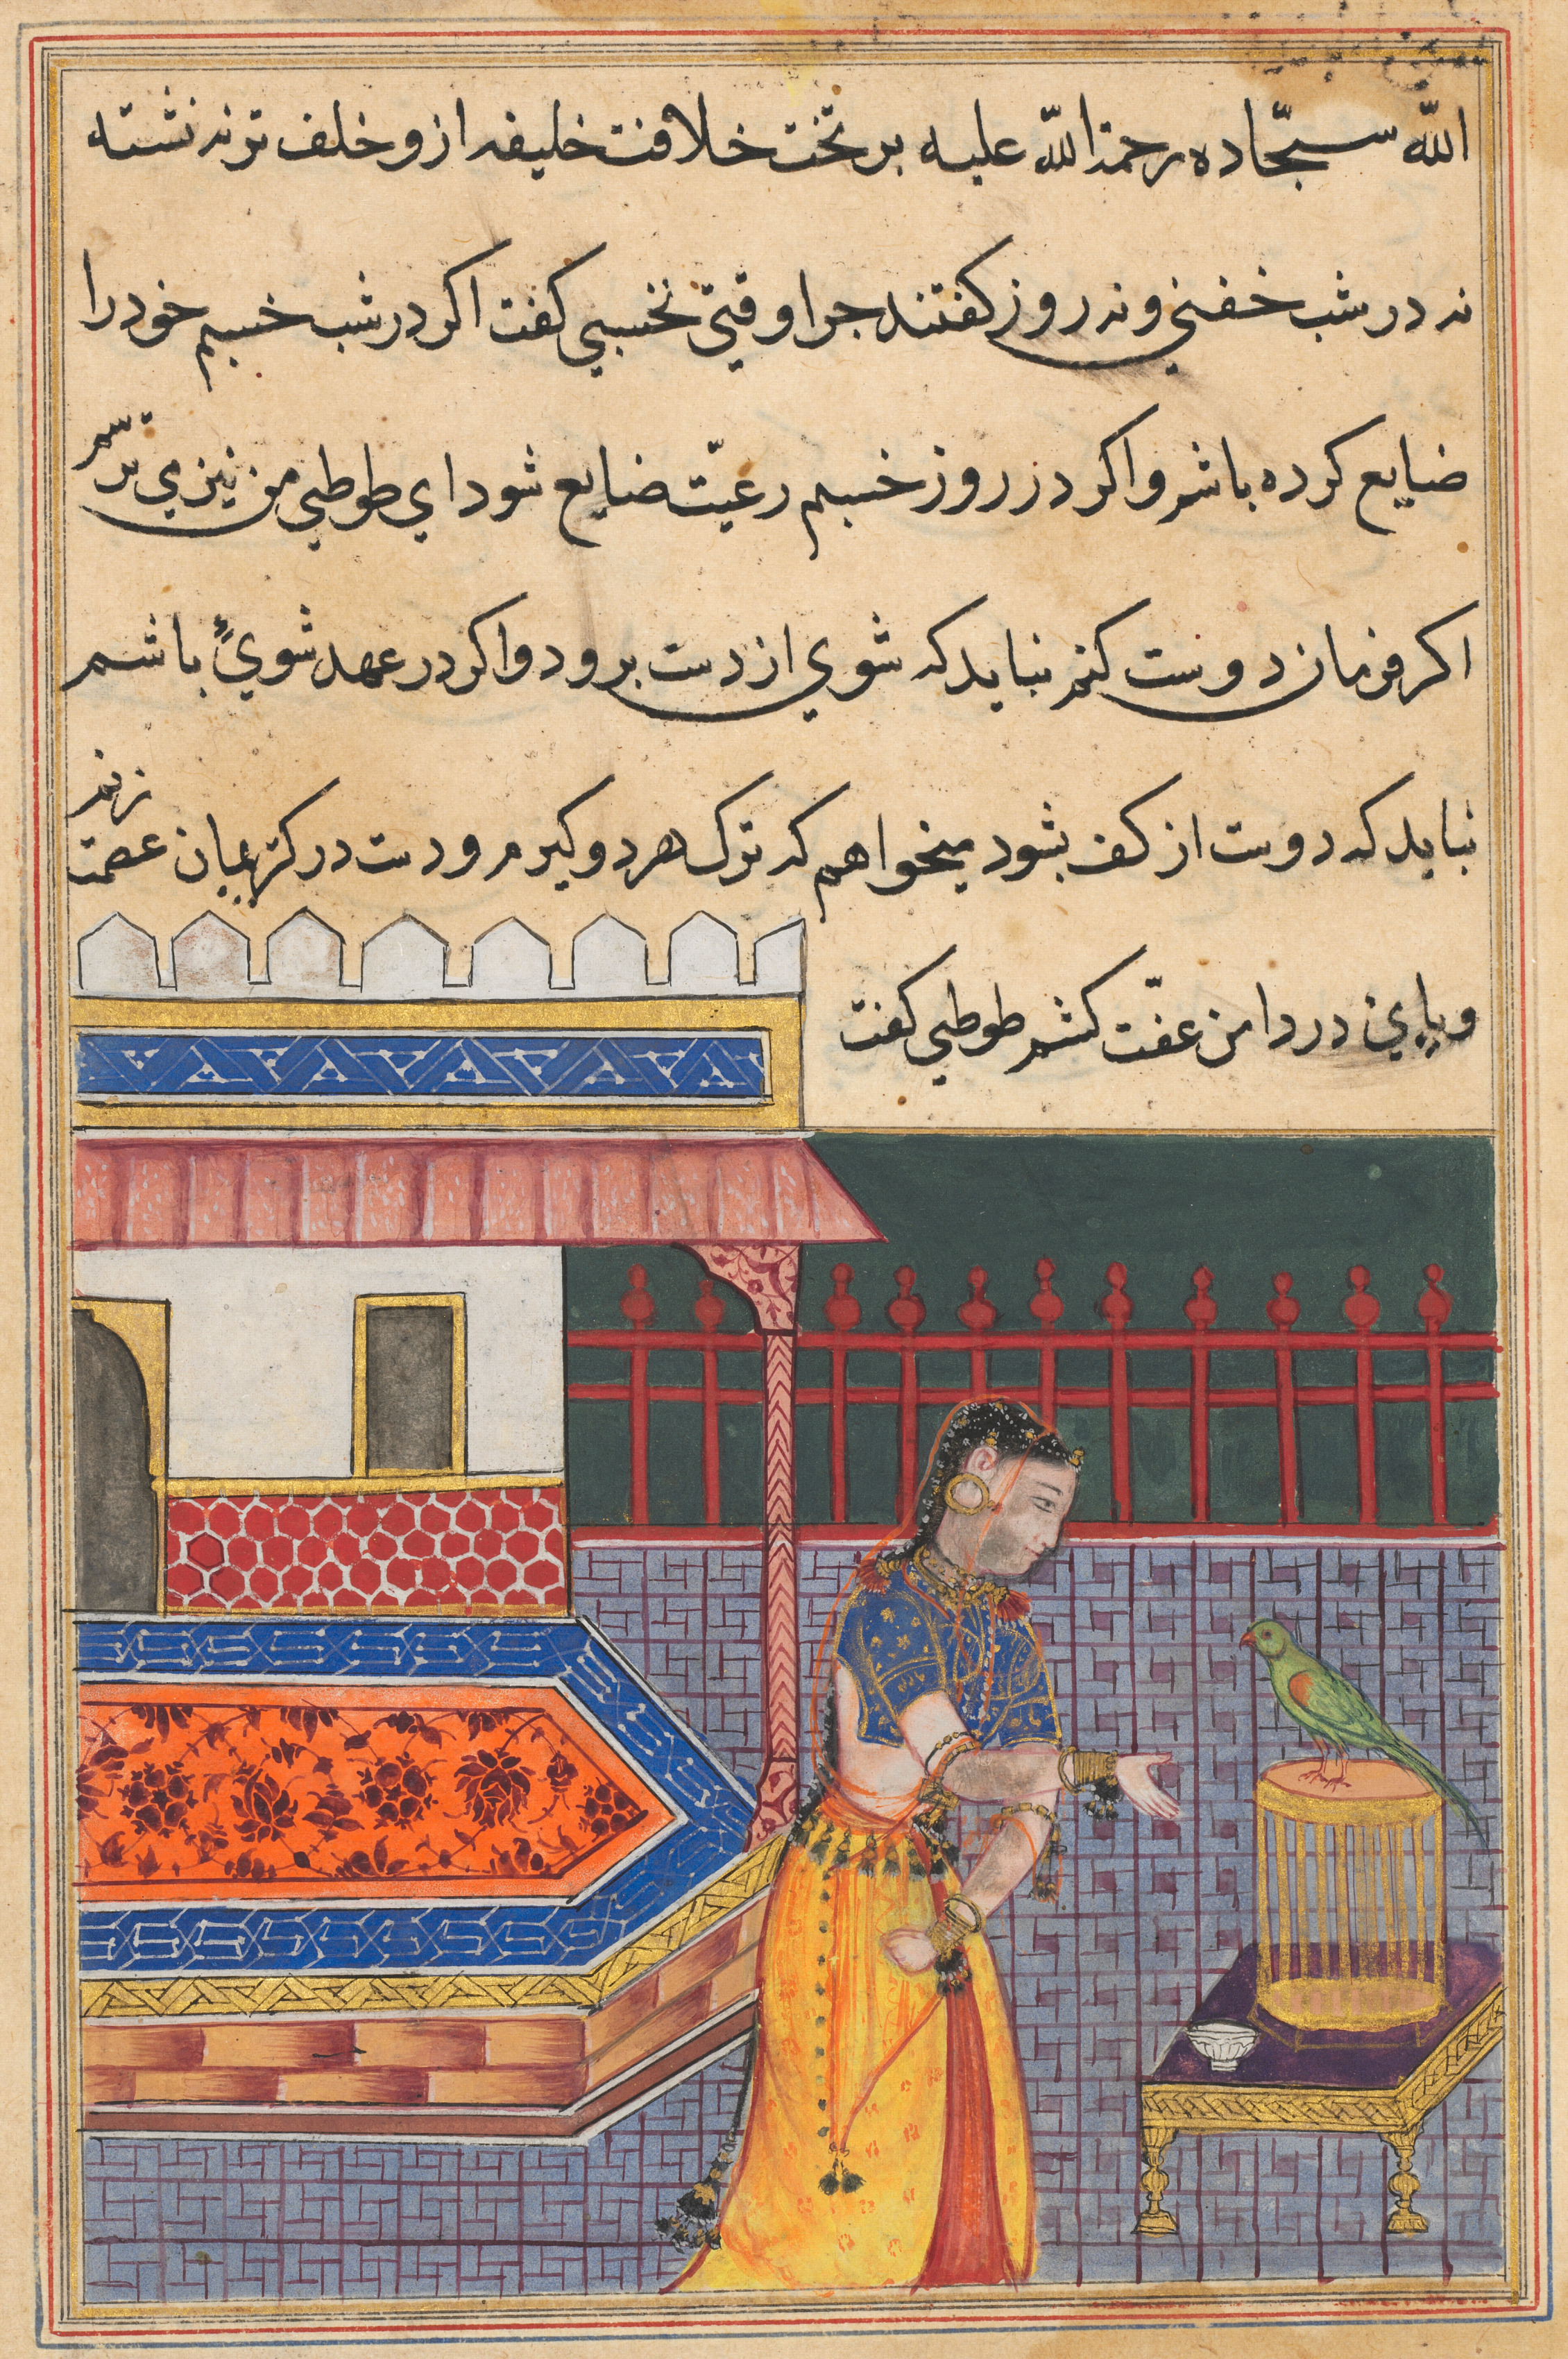 الله سجّاده رحمة الله عليه بر تخت خلافت خليفه ازو خلف تر ننشسته
نه در شب خفتي و نه روز كفتند جرا وقتي نخسبي كفت اكر در شب خسبم خود را
ضايع كرده باشم و اكر در روز خسبم رعيّت ضايع شود اي طوطي من نيز مي ترسم
اكر فرمان دوست كنم نبايد كه شوي از دست برود و اكر در عهد شوي باشم
نبايد كه دوست از كف بشود ميخواهم كه ترك هر دو كيرم و دست در كريبان عصمت زنم
و پاي در دامن عفّت كشم طوطي كفت